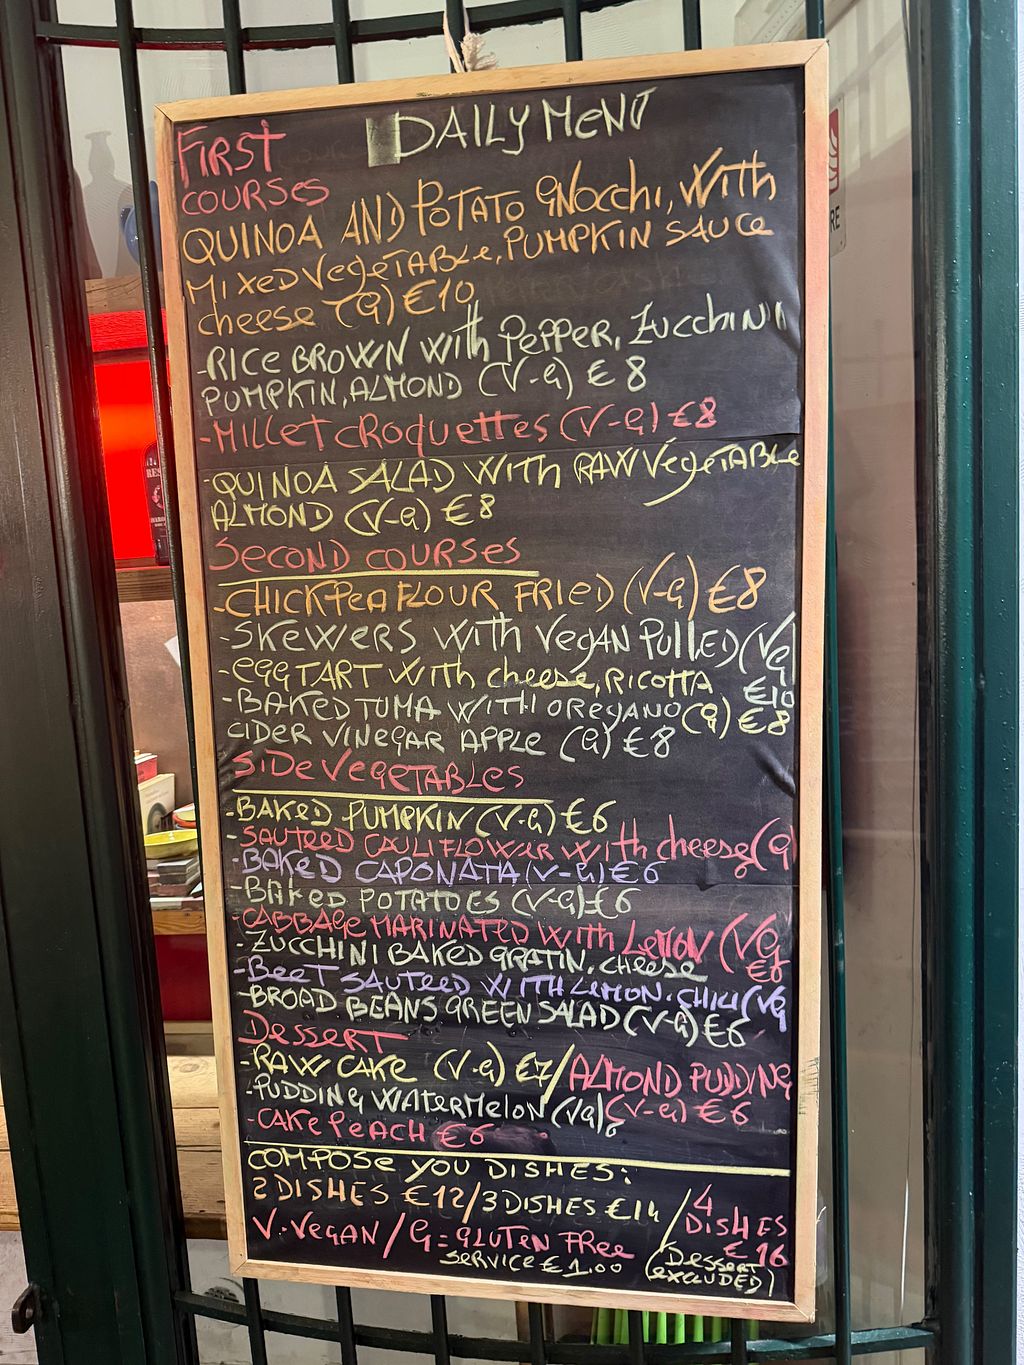 DAILY MENU
FIRST
COURSES
QUINOA AND POTATO GNOCCHI, WITH
MIXED VEGETABLE, PUMPKIN SAUCE
cheese (G) €10
-RICE BROWN WITH PEPPER, ZUCCHINI
PUMPKIN, ALMOND (V-G) €8
-MILLET CROQUETTES (V-G) €8
-QUINOA SALAD WITH RAW VEGETABLE
ALMOND (V-G) €8
SECOND COURSES
-CHICKPEA FLOUR FRIED (V-G) €8
-SKEWERS WITH VEGAN PULLED (VG
€10
-EGG TART WITH cheese, RICOTTA
(G) €8
-BAKED TUMA WITH OREGANO
CIDER VINEGAR APPLE (G) €8
SIDE VEGETABLES
-BAKED PUMPKIN (V-G) €6
-SAUTEED CAULIFLOWER WITH cheese (G)
-BAKED CAPONATA (V-G) €6
-BAKED POTATOES (V-G) €6
-CABBAGE MARINATED WITH LEMON (VG
€6
-ZUCCHINI BAKED GRATIN, CHEESE
-BEET SAUTEED WITH LEMON, CHILI (VG
-BROAD BEANS GREEN SALAD (V-G) €6
DESSERT
-RAW CAKE (V-G) €7/ALMOND PUDDING
(V-G) €6
-PUDDING WATERMELON (VG) 6
-CAKE PEACH €6
COMPOSE YOU DISHES:
2 DISHES €12/3 DISHES €14 /4
DISHES
€16
V=VEGAN / G=GLUTEN FREE
(DESSERT
EXCLUDED)
SERVICE €1.00
RE